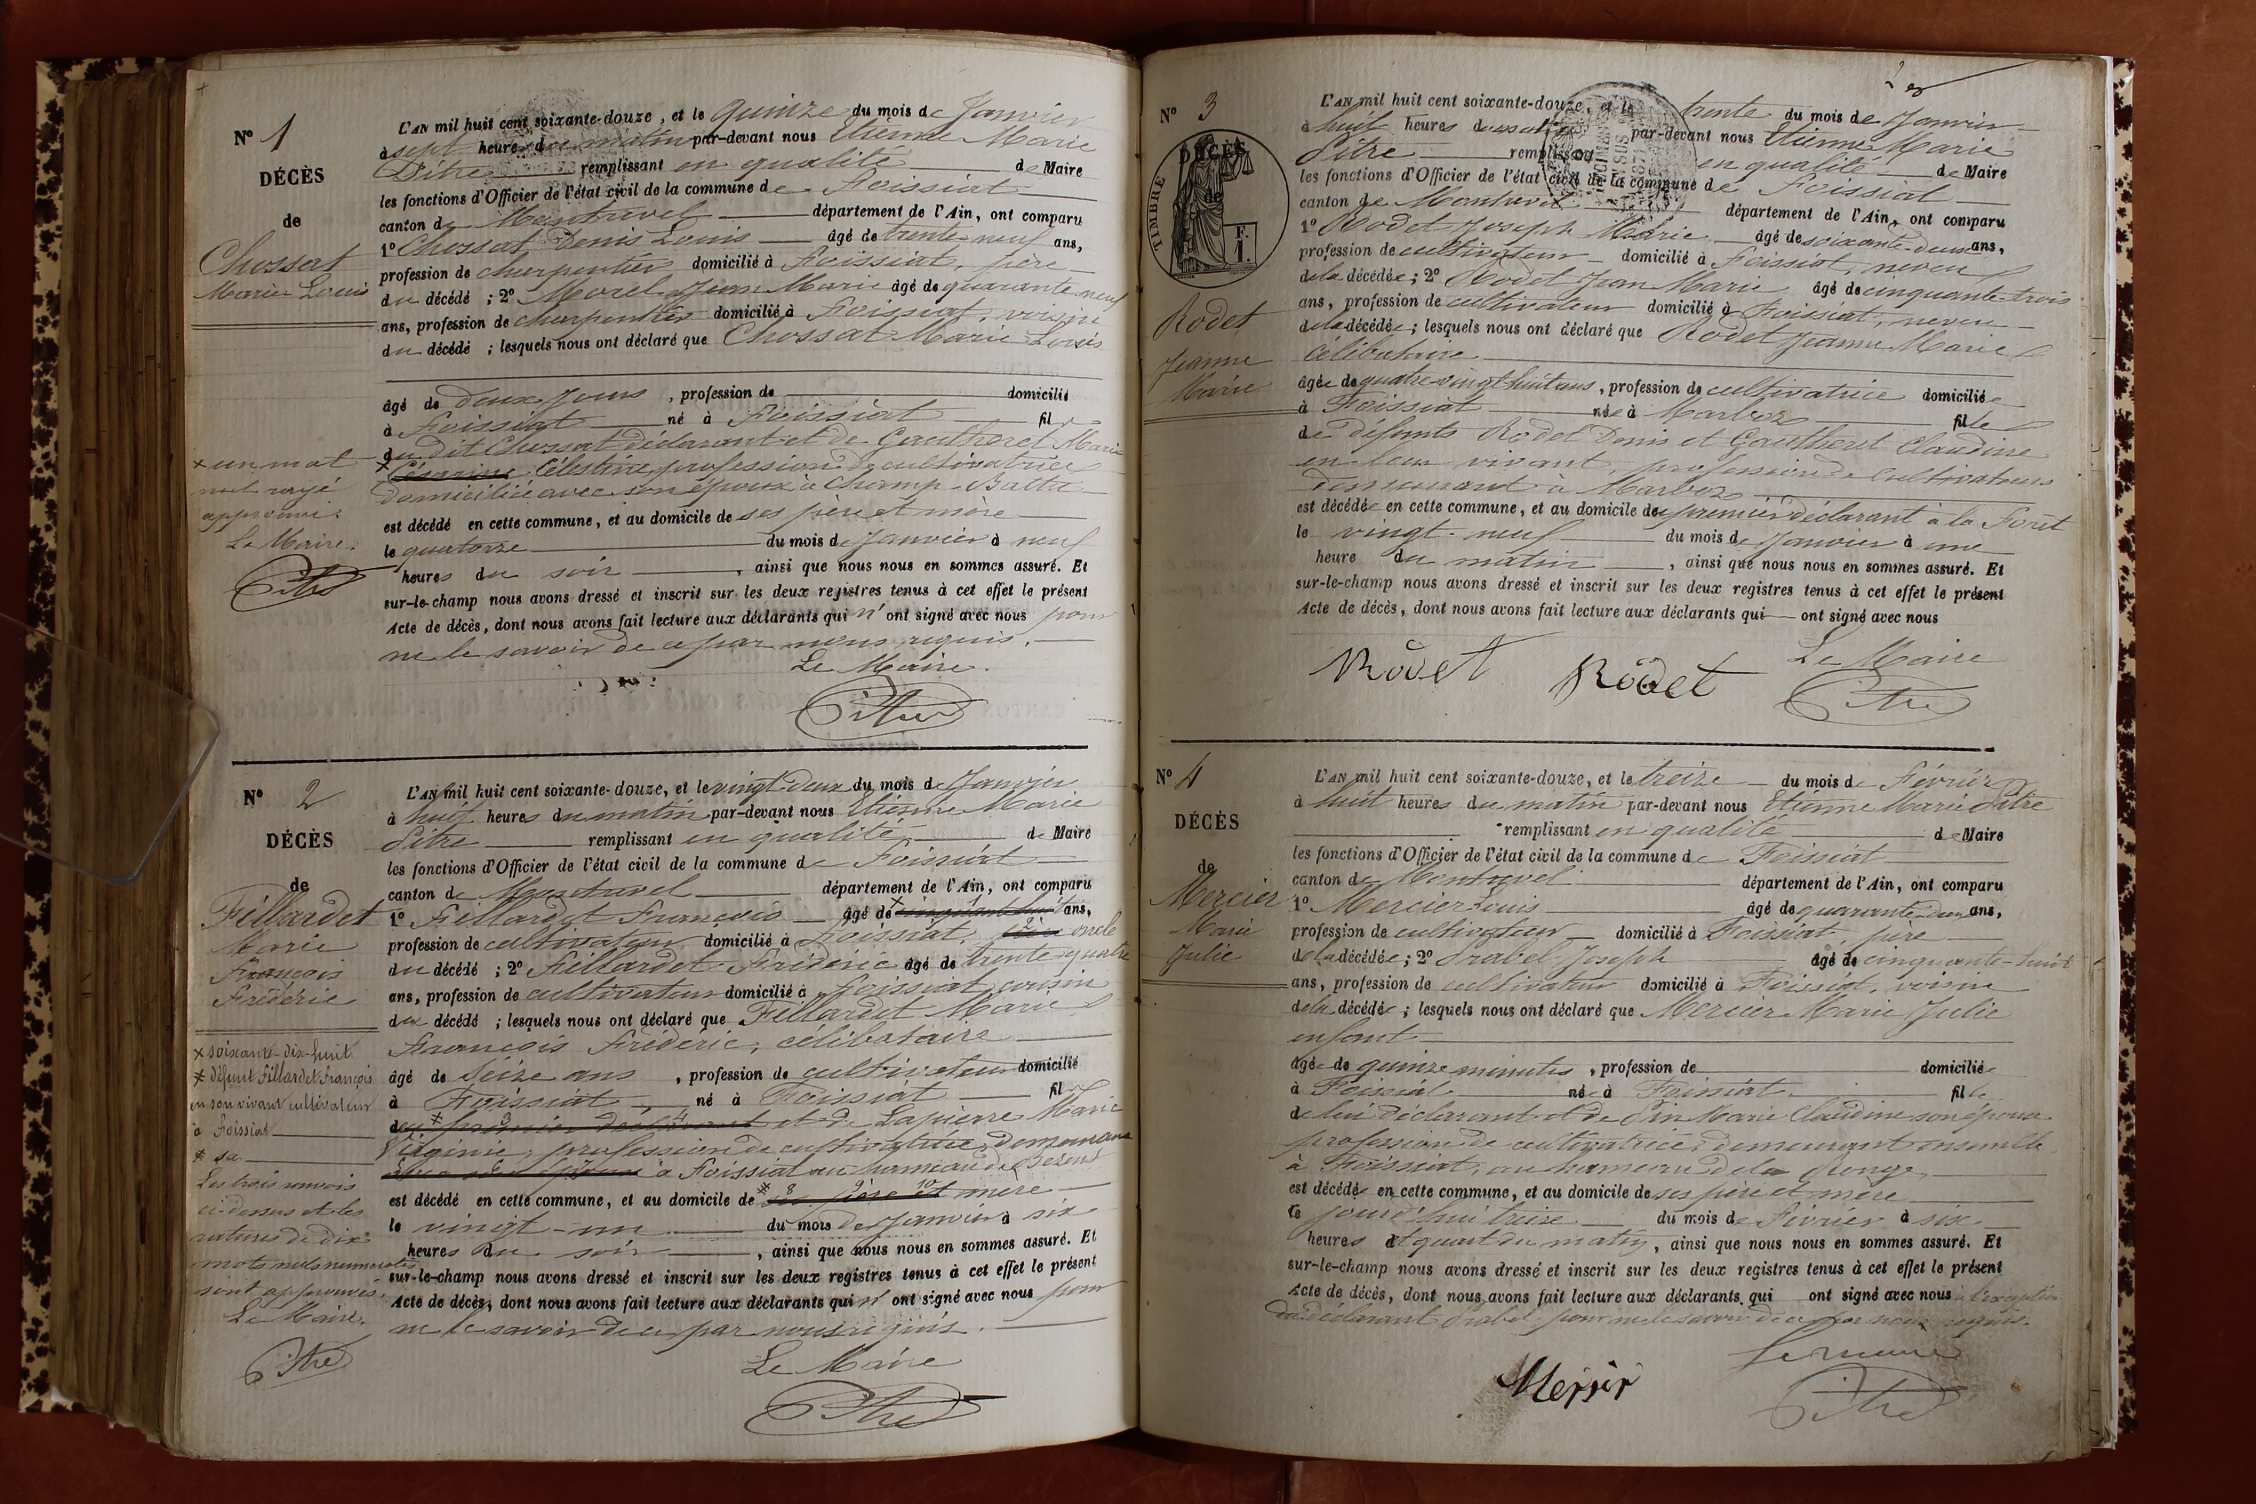 N° 1
DÉCÈS
de
Chossat
Marie Louis
× un mot
nul rayé
approuvé
Le Maire
Pitre
L'AN mil huit cent soixante-douze, et le quinze du mois de Janvier
à sept heures du matin par-devant nous Etienne Marie
Pitre remplissant en qualité de Maire
les fonctions d'Officier de l'état civil de la commune de Foissiat
canton de Montrevel département de l'Ain, ont comparu
1° Chossat Denis Louis âgé de trente-neuf ans,
profession de charpentier domicilié à Foissiat, père
du décédé ; 2° Morel Jean Marie âgé de quarante neuf
ans, profession de charpentier domicilié à Foissiat, voisin
du décédé ; lesquels nous ont déclaré que Chossat Marie Louis
âgé de deux jours, profession de domicilié
à Foissiat né à Foissiat fil
du dit Chossat déclarant et de Gautheret Marie
× Célestine, profession de cultivatrice
domiciliée avec son époux à Champ
est décédé en cette commune, et au domicile de ses père et mère
le quatorze du mois de Janvier à neuf
heures du soir, ainsi que nous nous en sommes assuré. Et
sur-le-champ nous avons dressé et inscrit sur les deux registres tenus à cet effet le présent
Acte de décès, dont nous avons fait lecture aux déclarants qui n'ont signé avec nous pour
ne le savoir de ce par nous requis.
Le Maire.
Pitre
N° 2
DÉCÈS
de
Fillardet
Marie
François
Frédéric
× soixante-dix-huit
* défunt Fillardet François
en son vivant cultivateur
à Foissiat
* sa
Les trois renvois
ci-dessus et les
ratures de dix
mots nuls numerotés
sont approuvés.
Le Maire.
Pitre
L'AN mil huit cent soixante-douze, et le vingt-deux du mois de Janvier
à huit heures du matin par-devant nous Etienne Marie
Pitre remplissant en qualité de Maire
les fonctions d'Officier de l'état civil de la commune de Foissiat
canton de Montrevel département de l'Ain, ont comparu
1° Fillardet François âgé de × cinquante huit ans,
profession de cultivateur domicilié à Foissiat, oncle
du décédé ; 2° Fillardet Frédéric âgé de trente quatre
ans, profession de cultivateur domicilié à Foissiat, cousin
du décédé ; lesquels nous ont déclaré que Fillardet Marie
François Frédéric, célibataire
âgé de seize ans, profession de cultivateur domicilié
à Foissiat né à Foissiat fil
du * premier déclarant et de Lapierre Marie
Virginie, profession de cultivatrice demeurant
à Foissiat au hameau de
est décédé en cette commune, et au domicile de * ses père et mère
le vingt-un du mois de Janvier à six
heures du soir, ainsi que nous nous en sommes assuré. Et
sur-le-champ nous avons dressé et inscrit sur les deux registres tenus à cet effet le présent
Acte de décès, dont nous avons fait lecture aux déclarants qui n'ont signé avec nous pour
ne le savoir de ce par nous requis.
Le Maire
Pitre
N° 3
DÉCÈS
de
TIMBRE
F.
1.
Rodet
Jeanne
Marie
L'AN mil huit cent soixante-douze, et le trente du mois de Janvier
à huit heures du matin par-devant nous Etienne Marie
Pitre remplissant en qualité de Maire
les fonctions d'Officier de l'état civil de la commune de Foissiat
canton de Montrevel département de l'Ain, ont comparu
1° Rodet Joseph Marie âgé de soixante-deux ans,
profession de cultivateur domicilié à Foissiat, neveu
de la décédée ; 2° Rodet Jean Marie âgé de cinquante-trois
ans, profession de cultivateur domicilié à Foissiat, neveu
de la décédée ; lesquels nous ont déclaré que Rodet Jeanne Marie
Célibataire
âgée de quatre vingt huit ans, profession de cultivatrice domiciliée
à Foissiat née à Marboz fille
de défunts Rodet Denis et Gautheret Claudine
en leur vivant, profession de cultivateurs
demeurant à Marboz
est décédée en cette commune, et au domicile du premier déclarant à la Forêt
le vingt-neuf du mois de Janvier à une
heure du matin, ainsi que nous nous en sommes assuré. Et
sur-le-champ nous avons dressé et inscrit sur les deux registres tenus à cet effet le présent
Acte de décès, dont nous avons fait lecture aux déclarants qui ont signé avec nous
Le Maire
Rodet Rodet Pitre
N° 4
DÉCÈS
de
Mercier
Marie
Julie
L'AN mil huit cent soixante-douze, et le treize du mois de Février
à huit heures du matin par-devant nous Etienne Marie Pitre
remplissant en qualité de Maire
les fonctions d'Officier de l'état civil de la commune de Foissiat
canton de Montrevel département de l'Ain, ont comparu
1° Mercier Louis âgé de quarante-deux ans,
profession de cultivateur domicilié à Foissiat, père
de la décédée ; 2° Prabel Joseph âgé de cinquante-huit
ans, profession de cultivateur domicilié à Foissiat, voisin
de la décédée ; lesquels nous ont déclaré que Mercier Marie Julie
enfant
âgée de quinze minutes, profession de domiciliée
à Foissiat née à Foissiat fille
de lui déclarant et de Pin Marie Claudine son épouse
profession de cultivatrice, demeurant ensemble
à Foissiat, au hameau de la
est décédée en cette commune, et au domicile de ses père et mère
le jourd'hui treize du mois de Février à six
heures et quart du matin, ainsi que nous nous en sommes assuré. Et
sur-le-champ nous avons dressé et inscrit sur les deux registres tenus à cet effet le présent
Acte de décès, dont nous avons fait lecture aux déclarants qui ont signé avec nous à l'exception
du déclarant Prabel pour ne le savoir de ce par nous requis.
Le maire
Mersir
Pitre